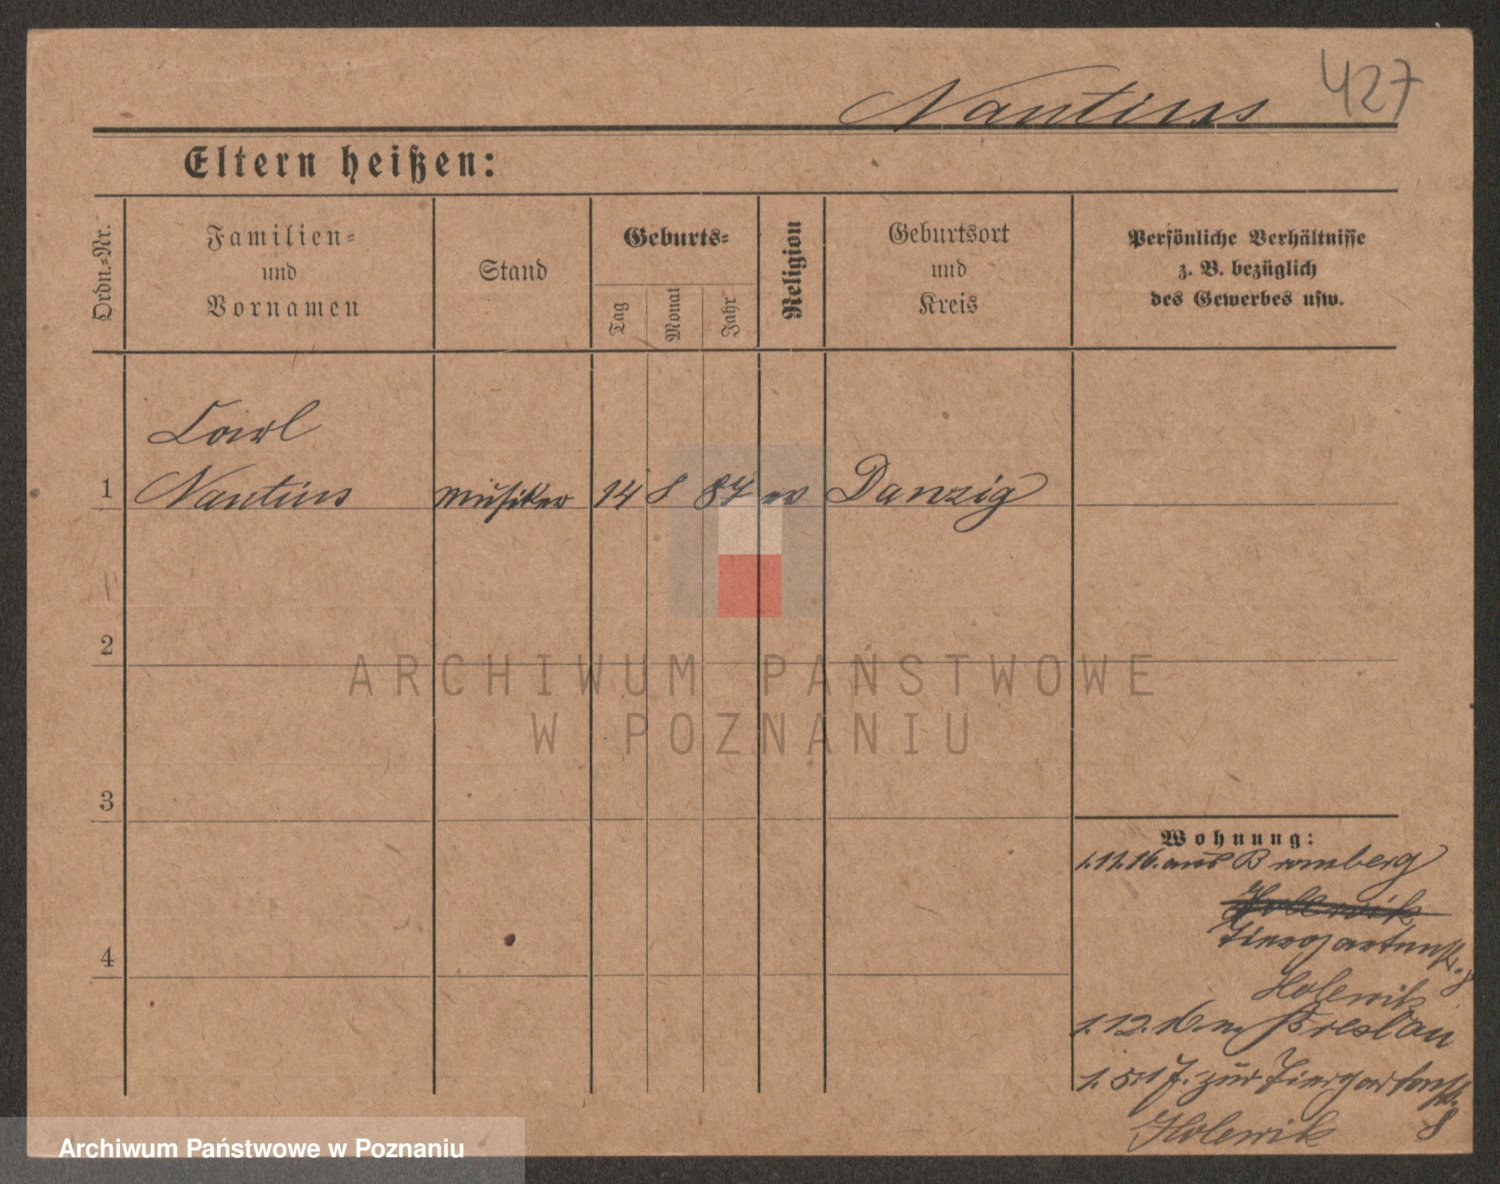 427
Nantius
Eltern heißen:
Ordn.-Nr.
Familien-
und
Vornamen
Stand
Geburts-
Tag
Monat
Jahr
Religion
Geburtsort
und
Kreis
Persönliche Verhältnisse
z. B. bezüglich
des Gewerbes usw.
Carl
1 Nantius Musiker 14 8 87 ev Danzig
2
3
4
Wohnung:
1.11.16. aus Bromberg
Tiergartenstr. 8
Holewik
1.12.16. n. Breslau
1.5.17. zur Tiergartenstr.
8
Holewik
ARCHIWUM PAŃSTWOWE
W POZNANIU
Archiwum Państwowe w Poznaniu